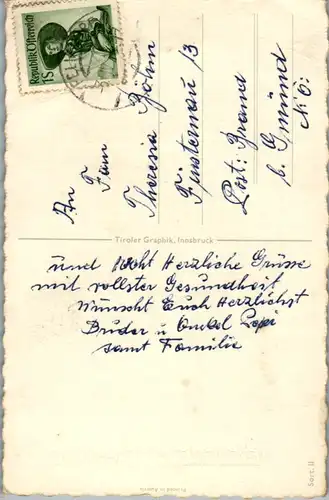 Republik Österreich
1S
An
Fam
Theresia Böhm
Finsternau 13
Post: Brand
b. Gmünd
N.Ö.
Tiroler Graphik, Innsbruck
und Herzliche Grüsse
mit vollster Gesundheit
Wünscht Euch Herzlichst
Bruder u Onkel Pepi
samt Familie
Printed in Austria
Sort. II